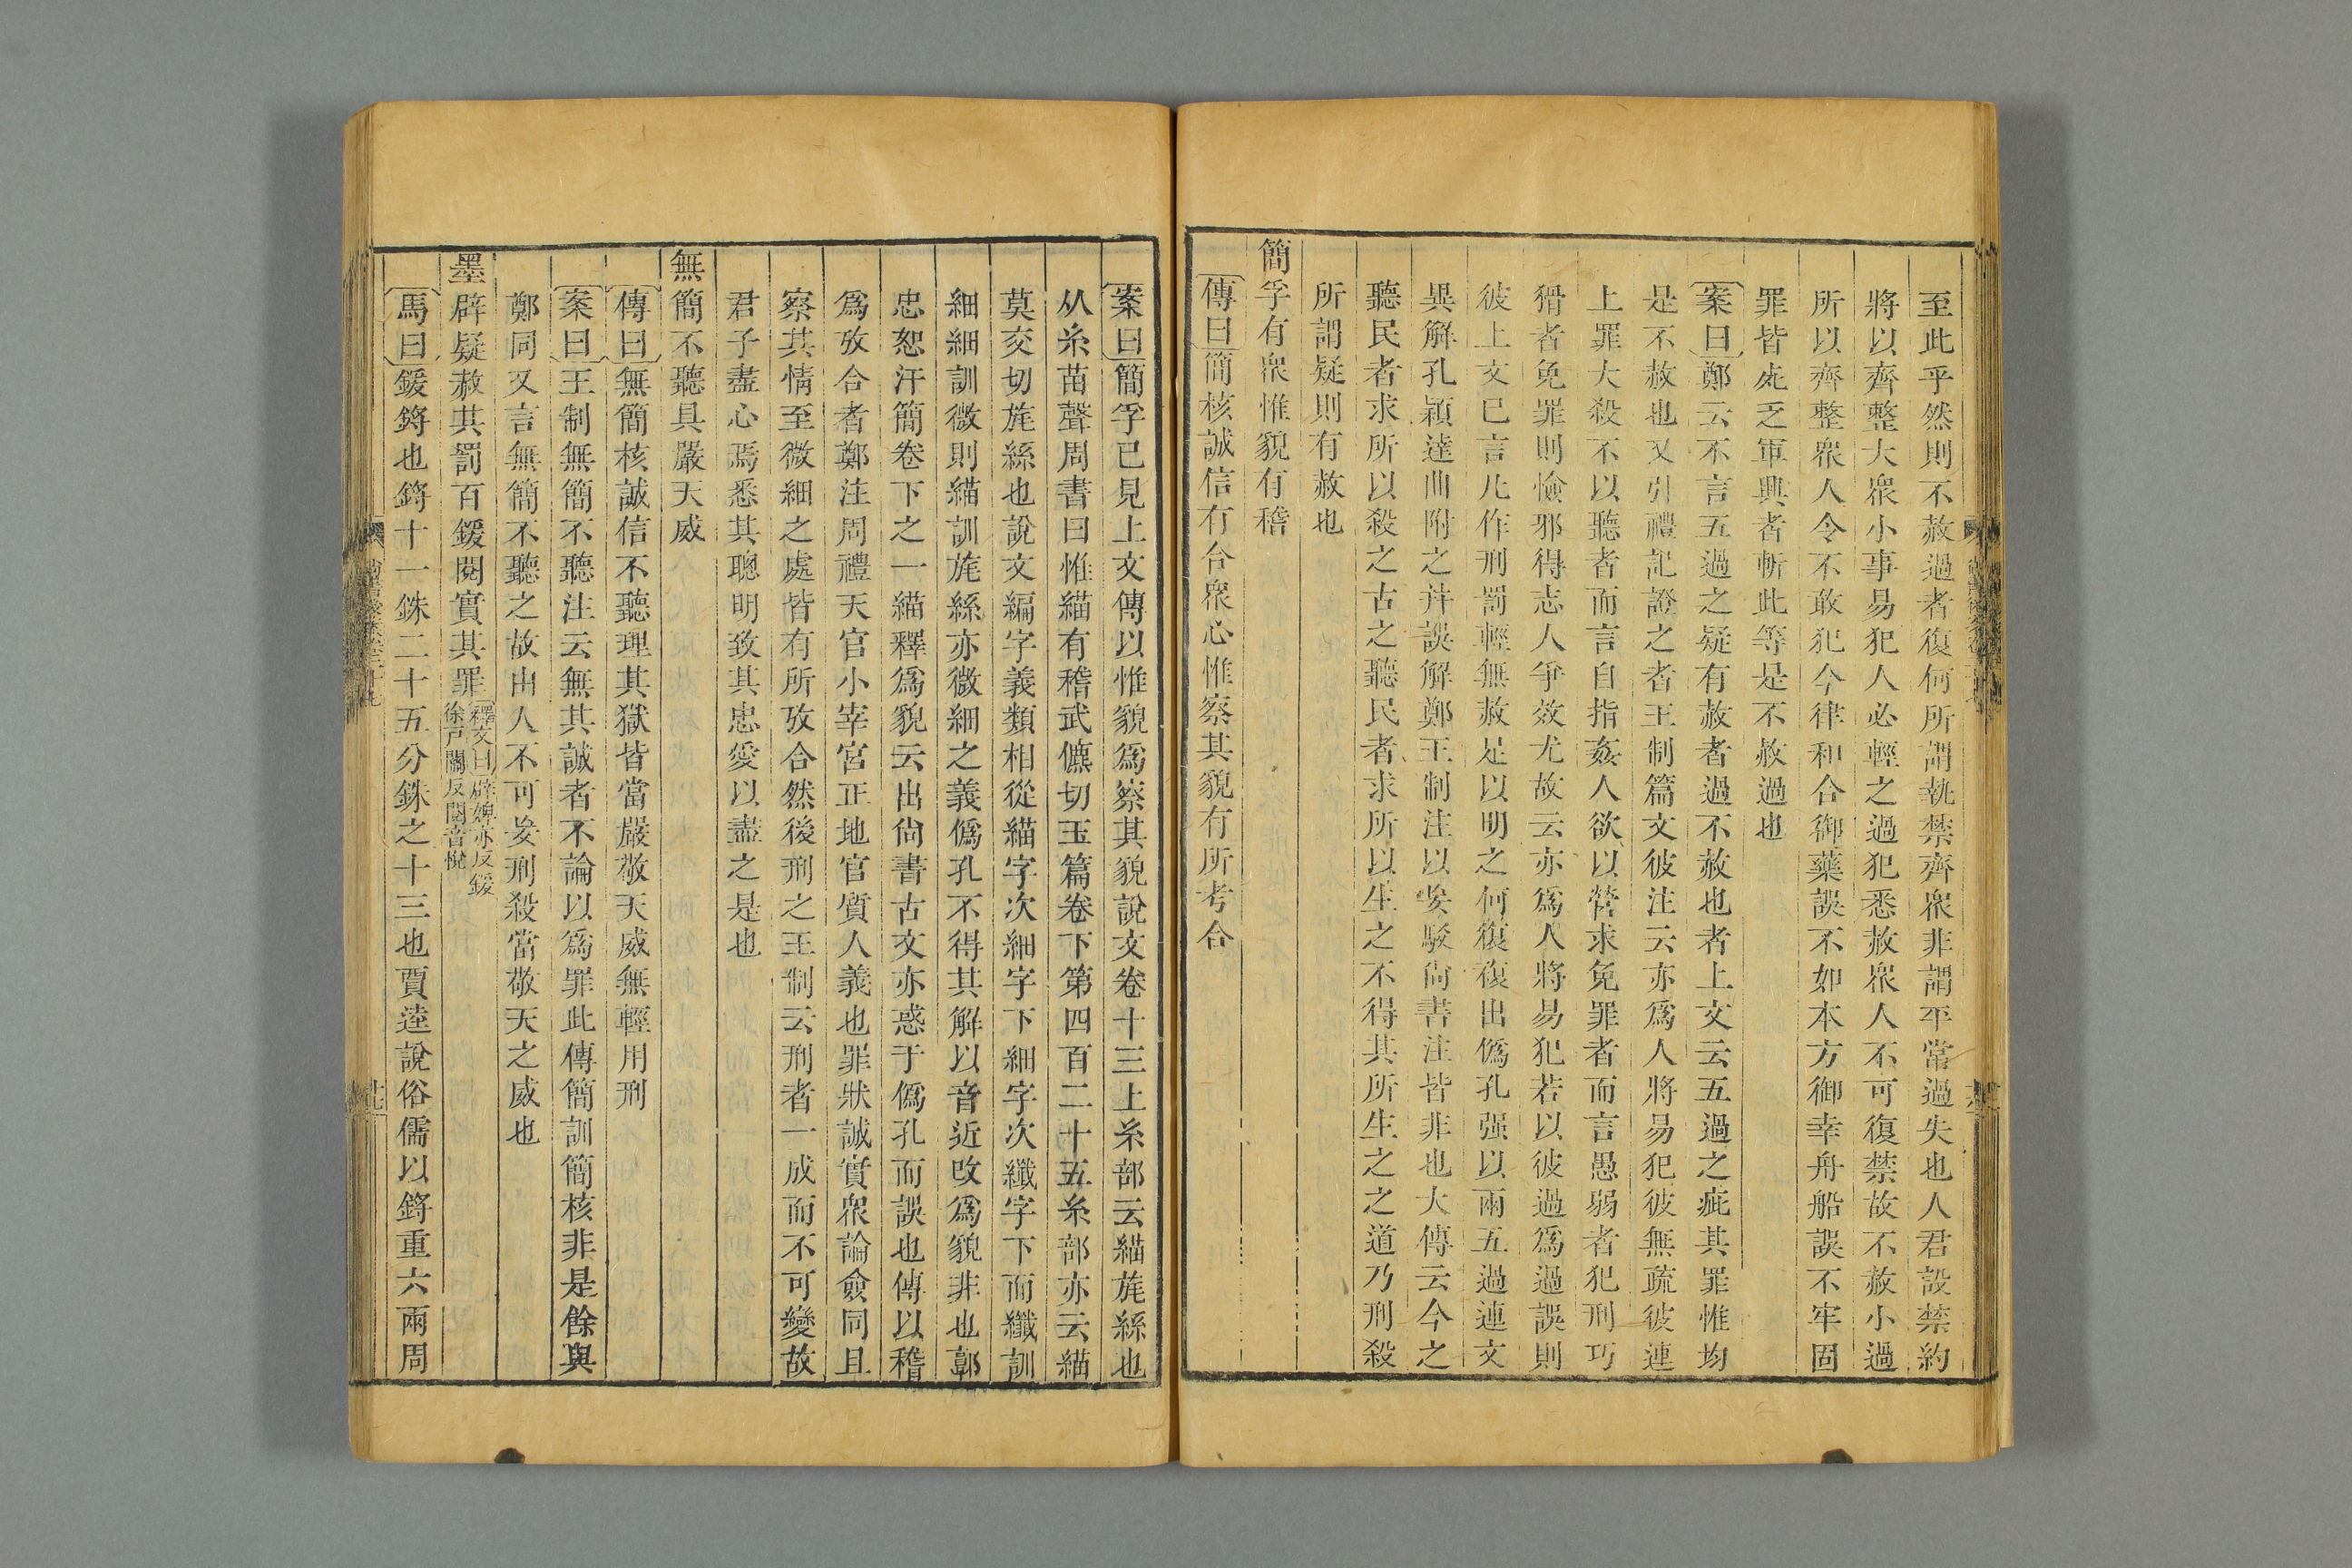 至此乎然則不赦過者復何所謂執禁齊眾非謂平常過失也人君設禁約
將以齊整大眾小事易犯人必輕之過犯悉赦眾人不可復禁故不赦小過
所以齊整眾人令不敢犯今律和合御藥誤不如本方御幸舟船誤不牢固
罪皆死乏軍興者斬此等是不赦過也
案曰鄭云不言五過之疑有赦者過不赦也者上文云五過之疵其罪惟均
是不赦也又引禮記證之者王制篇文彼注云亦爲人將易犯彼無疏彼連
上罪大殺不以聽者而言自指姦人欲以營求免罪者而言愚弱者犯刑巧
猾者免罪則憸邪得志人爭效尤故云亦爲人將易犯若以彼過爲過誤則
彼上文已言凡作刑罰輕無赦足以明之何復複出僞孔强以兩五過連文
異解孔穎達曲附之并誤解鄭王制注以妄駁尙書注皆非也大傳云今之
聽民者求所以殺之古之聽民者求所以生之不得其所生之之道乃刑殺
所謂疑則有赦也
簡孚有眾惟貌有稽
傳曰簡核誠信有合眾心惟察其貌有所考合
案曰簡孚已見上文傳以惟貌爲察其貌說文卷十三上糸部云緢旄絲也
从糸苗聲周書曰惟緢有稽武儦切玉篇卷下第四百二十五糸部亦云緢
莫交切旄絲也說文編字義類相從緢字次細字下細字次纖字下而纖訓
細細訓微則緢訓旄絲亦微細之義僞孔不得其解以音近改爲貌非也郭
忠恕汗簡卷下之一緢釋爲貌云出尙書古文亦惑于僞孔而誤也傳以稽
爲攷合者鄭注周禮天官小宰宮正地官質人義也罪狀誠實眾論僉同且
察其情至微細之處皆有所攷合然後刑之王制云刑者一成而不可變故
君子盡心焉悉其聰明致其忠愛以盡之是也
無簡不聽具嚴天威
傳曰無簡核誠信不聽理其獄皆當嚴敬天威無輕用刑
案曰王制無簡不聽注云無其誠者不論以爲罪此傳簡訓簡核非是餘與
鄭同又言無簡不聽之故由人不可妄刑殺當敬天之威也
墨辟疑赦其罰百鍰閱實其罪釋文曰辟婢亦反鍰
徐戶關反閱音悅
馬曰鍰鋝也鋝十一銖二十五分銖之十三也賈逵說俗儒以鋝重六兩周